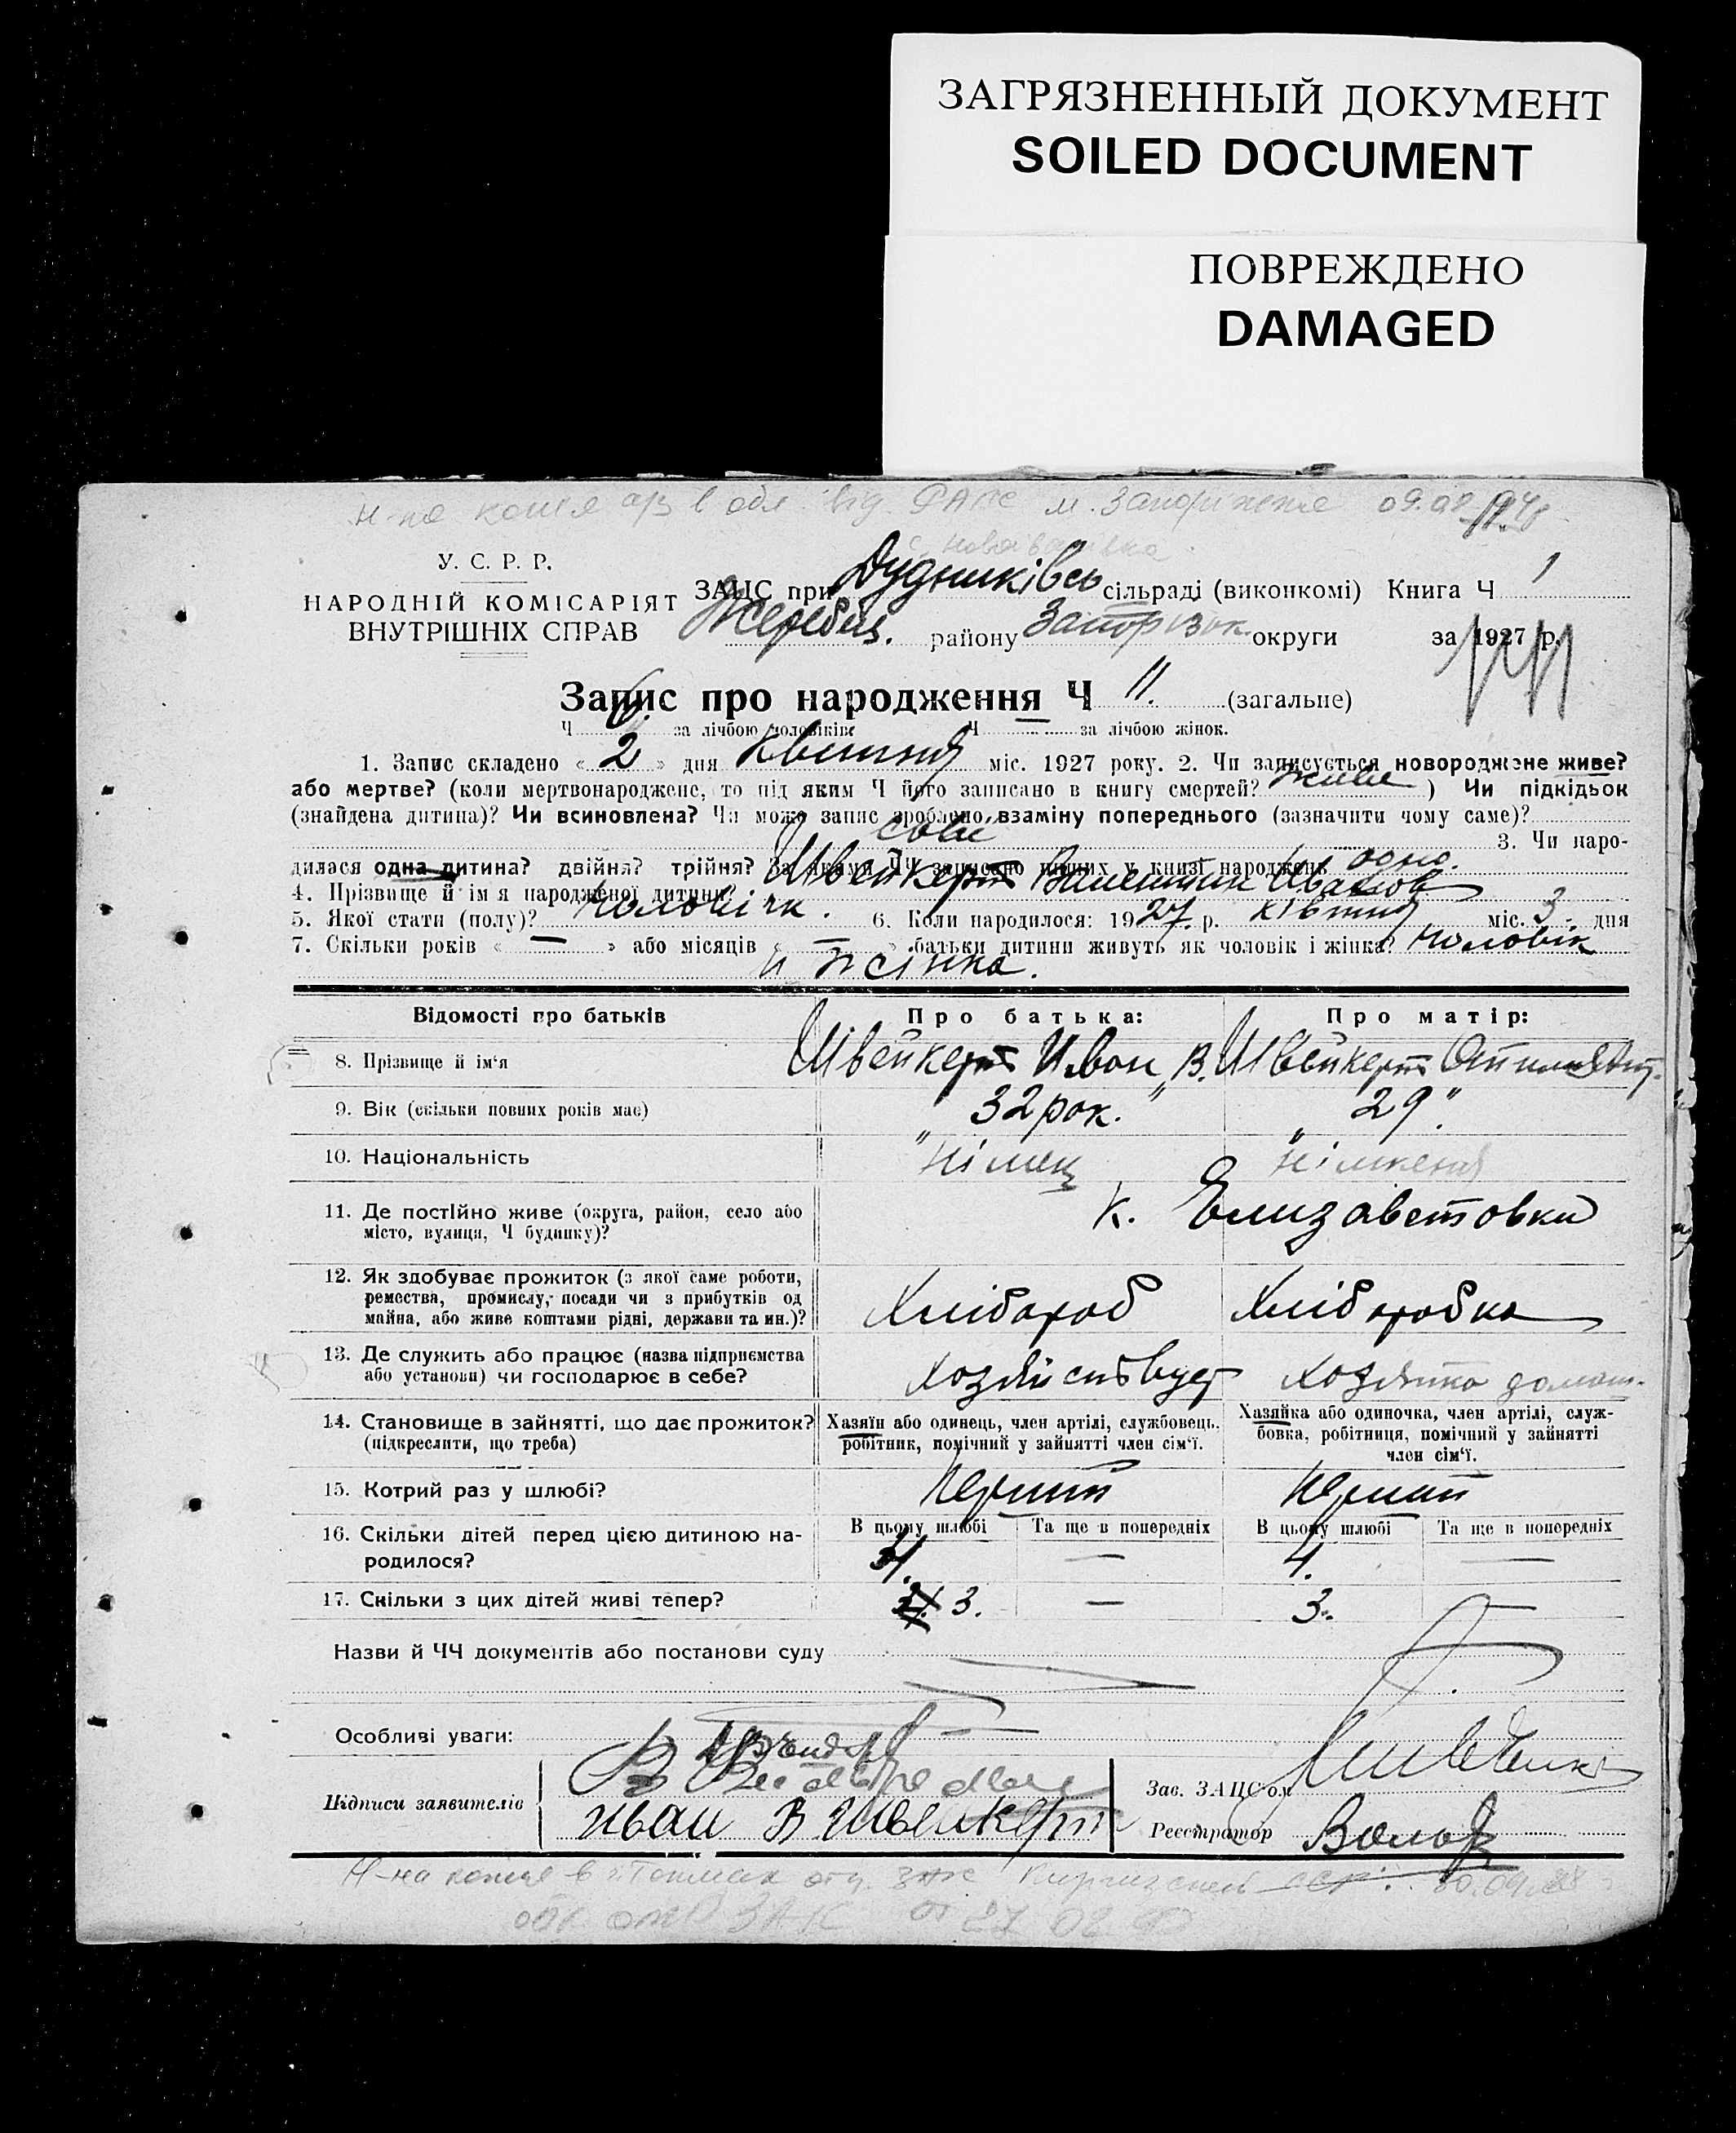 ЗАГРЯЗНЕННЫЙ ДОКУМЕНТ
SOILED DOCUMENT
ПОВРЕЖДЕНО
DAMAGED
У. С. Р. Р.
НАРОДНІЙ КОМІСАРІЯТ
ВНУТРІШНІХ СПРАВ
ЗАЦС при Дудниківсь сільраді (виконкомі) Книга Ч 1
Жеребец. району Запорізьк. округи за 1927 р.
Запис про народження Ч 11. (загальне)
Ч 6 за лічбою чоловіків Ч — за лічбою жінок.
1. Запис складено « 2 » дня квітня міс. 1927 року. 2. Чи записується новороджене живе?
або мертве? (коли мертвонароджене, то під яким Ч його записано в книгу смертей? живе ) Чи підкідьок
(знайдена дитина)? Чи всиновлена? Чи може запис зроблено взаміну попереднього (зазначити чому саме)?
свій 3. Чи наро-
дилася одна дитина? двійня? трійня? За якими ЧЧ записано инших у книзі народжень одно.
4. Прізвище й ім'я народженої дитини? Швейкерт Валентин Иванов
5. Якої стати (полу)? Чоловічк. 6. Коли народилося: 1927 р. квітня міс. 3 дня
7. Скільки років « — » або місяців « — » батьки дитини живуть як чоловік і жінка? Чоловік
и жінка.
Відомості про батьків Про батька: Про матір:
8. Прізвище й ім'я Швейкерт Иван В. Швейкерт
9. Вік (скільки повних років має) 32 рок. " 29 "
10. Національність "німец "німкеня
11. Де постійно живе (округа, район, село або к. Елизаветовки
місто, вулиця, Ч будинку)?
12. Як здобуває прожиток (з якої саме роботи,
ремества, промислу, посади чи з прибутків од Хлібороб Хліборобка
майна, або живе коштами рідні, держави та ин.)?
13. Де служить або працює (назва підприємства
або установи) чи господарює в себе? хозяйствует хозяйка домаш.
14. Становище в зайнятті, що дає прожиток? Хазяїн або одинець, член артілі, службовець, Хазяйка або одиночка, член артілі, служ-
(підкреслити, що треба) робітник, помічний у зайнятті член сім'ї. бовка, робітниця, помічний у зайнятті
член сім'ї.
15. Котрий раз у шлюбі? перший перший
16. Скільки дітей перед цією дитиною на- В цьому шлюбі Та ще в попередніх В цьому шлюбі Та ще в попередніх
родилося? 4. — 4. —
17. Скільки з цих дітей живі тепер? 3. — 3. —
Назви й ЧЧ документів або постанови суду
Особливі уваги:
Підписи заявителів
Иван В Швейкерт
Зав. ЗАЦС'ом
Реєстратор